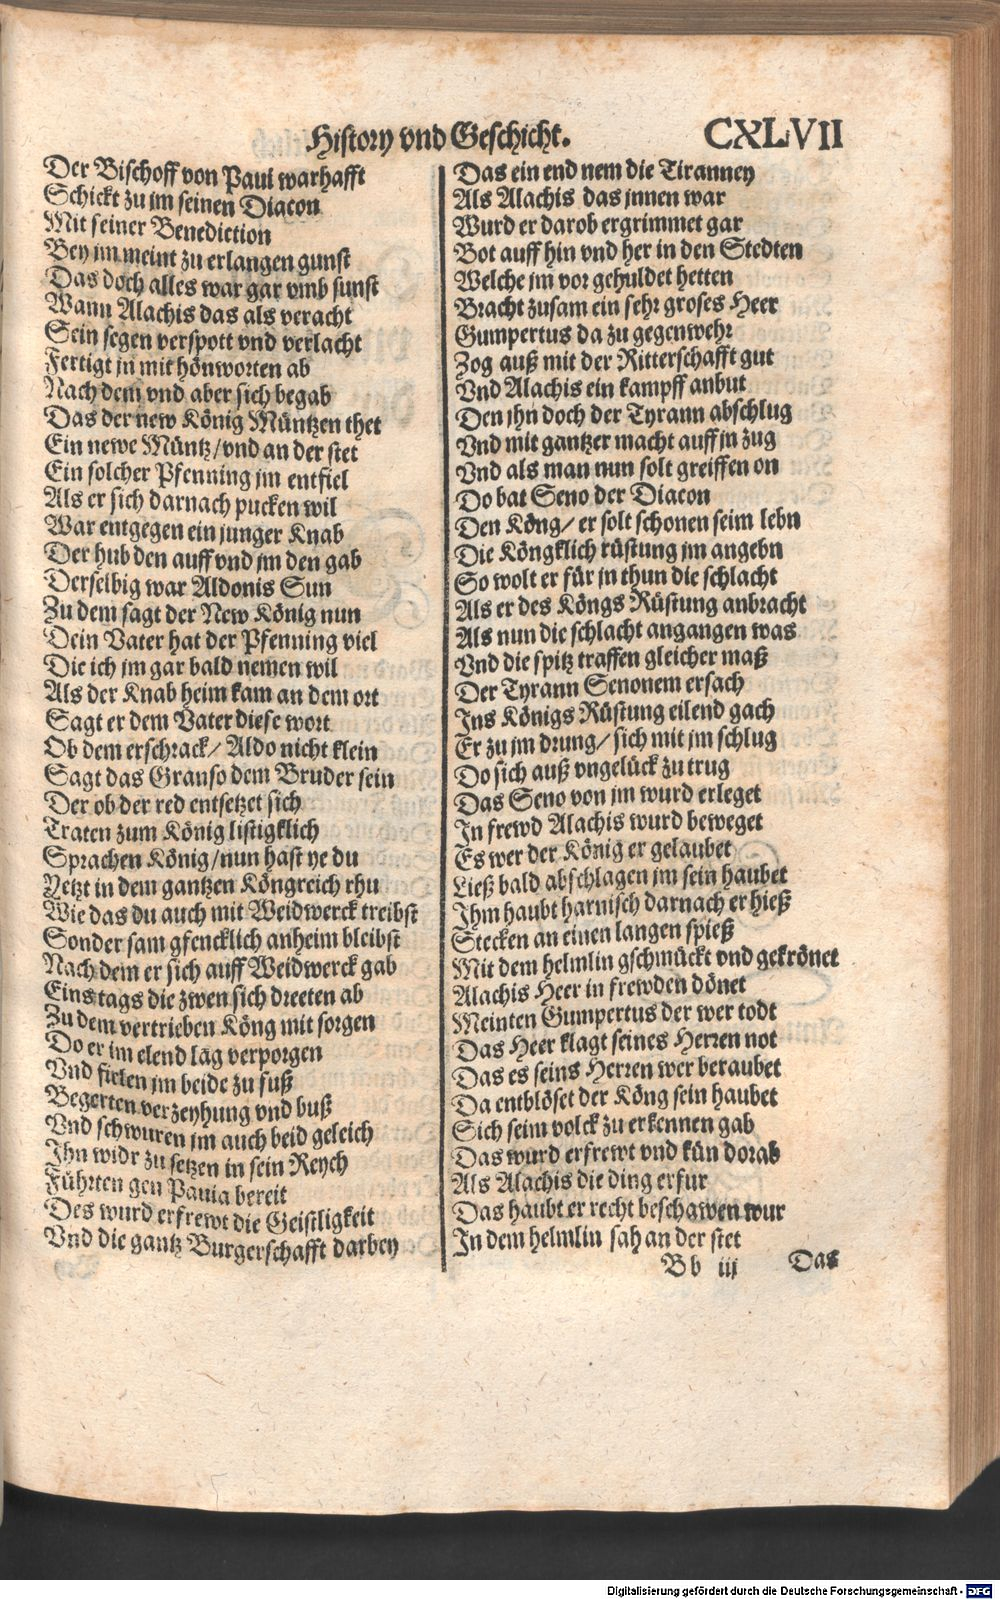 History vnd Geschicht.
CXLVII
Der Bischoff von Paui warhafft
Schickt zu jm seinen Diacon
Mit seiner Benediction
Bey jm meint zu erlangen gunst
Das doch alles war gar vmb sunst
Wann Alachis das als veracht
Sein segen verspott vnd verlacht
Fertigt jn mit hönworten ab
Nach dem vnd aber sich begab
Das der new König Müntzen thet
Ein newe Müntz/ vnd an der stet
Ein solcher Pfenning jm entfiel
Als er sich darnach pucken wil
War entgegen ein junger Knab
Der hub den auff vnd jm den gab
Derselbig war Aldonis Sun
Zu dem sagt der New König nun
Dein Vater hat der Pfenning viel
Die ich jm gar bald nemen wil
Als der Knab heim kam an dem ort
Sagt er dem Vater diese wort
Ob dem erschrack/ Aldo nicht klein
Sagt das Granso dem Bruder sein
Der ob der red entsetzet sich
Traten zum König listigklich
Sprachen König/ nun hast ye du
Yetzt in dem gantzen Köngreich rhu
Wie das du auch mit Weidwerck treibst
Sonder sam gfencklich anheim bleibst
Nach dem er sich auff Weidwerck gab
Eins tags die zwen sich dreeten ab
Zu dem vertrieben Köng mit sorgen
Do er im elend lag verporgen
Vnd fielen jm beide zu fuß
Begerten verzeyhung vnd buß
Vnd schwuren jm auch beid geleich
Ihn widr zu setzen in sein Reych
Führten gen Pauia bereit
Des wurd erfrewt die Geistligkeit
Vnd die gantz Burgerschafft darbey
Das ein end nem die Tiranney
Als Alachis das jnnen war
Wurd er darob ergrimmet gar
Bot auff hin vnd her in den Stedten
Welche jm vor gehuldet hetten
Bracht zusam ein sehr groses Heer
Gumpertus da zu gegenwehr
Zog auß mit der Ritterschafft gut
Vnd Alachis ein kampff anbut
Den jhn doch der Tyrann abschlug
Vnd mit gantzer macht auff jn zug
Vnd als man nun solt greiffen on
Do bat Seno der Diacon
Den Köng/ er solt schonen seim lebn
Die Köngklich rüstung jm angebn
So wolt er für jn thun die schlacht
Als er des Köngs Rüstung anbracht
Als nun die schlacht angangen was
Vnd die spitz traffen gleicher maß
Der Tyrann Senonem ersach
Ins Königs Rüstung eilend gach
Er zu jm drung/ sich mit jm schlug
Do sich auß vngelück zu trug
Das Seno von jm wurd erleget
In frewd Alachis wurd beweget
Es wer der König er gelaubet
Ließ bald abschlagen jm sein haubet
Ihm haubt harnisch darnach er hieß
Stecken an einen langen spieß
Mit dem helmlin gschmückt vnd gekrönet
Alachis Heer in frewden dönet
Meinten Gumpertus der wer todt
Das Heer klagt seines Herren not
Das es seins Herren wer beraubet
Da entblöset der Köng sein haubet
Sich seim volck zu erkennen gab
Das wurd erfrewt vnd kün dorab
Als Alachis die ding erfur
Das haubt er recht beschawen wur
In dem helmlin sah an der stet
Bb iij
Das
Digitalisierung gefördert durch die Deutsche Forschungsgemeinschaft - DFG